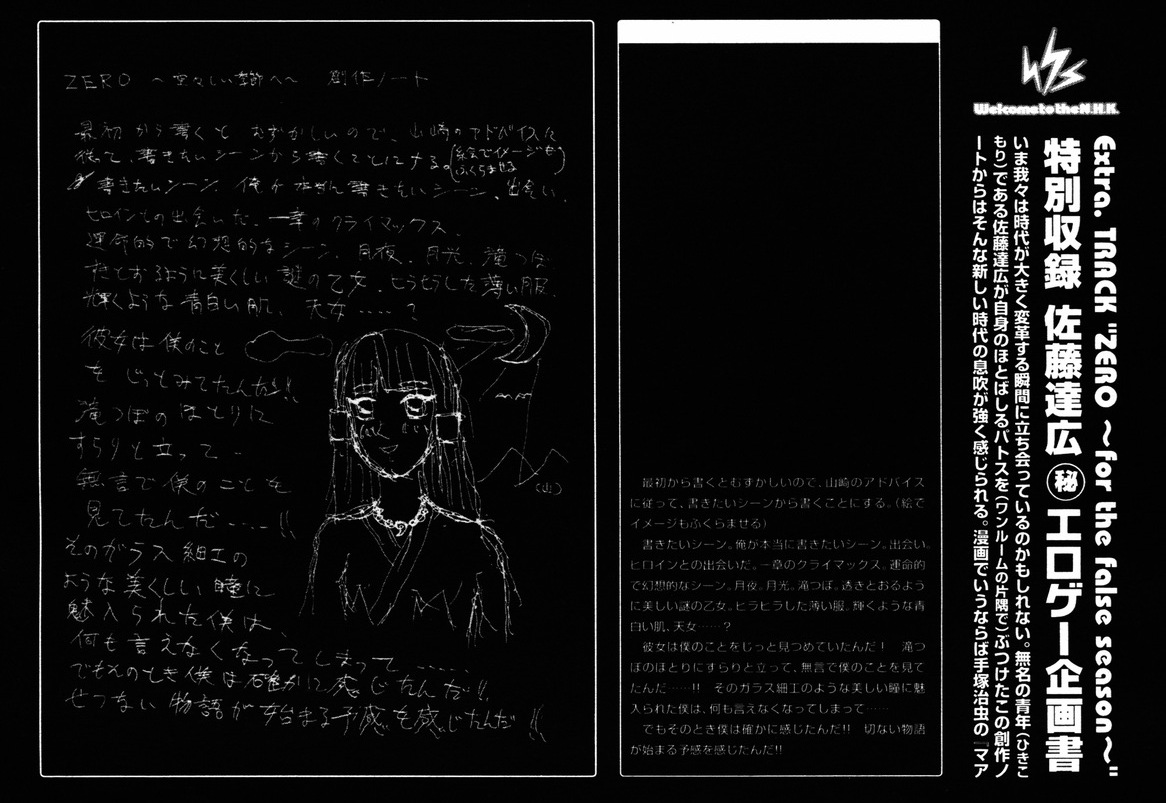 Welcome to the N.H.K.
Extra. TRACK "ZERO ～for the false season～"
特別収録 佐藤達広 ㊙ エロゲー企画書
いま我々は時代が大きく変革する瞬間に立ち会っているのかもしれない。無名の青年（ひきこ
もり）である佐藤達広が自身のほとばしるパトスを（ワンルームの片隅で）ぶつけたこの創作ノ
ートからはそんな新しい時代の息吹が強く感じられる。漫画でいうならば手塚治虫の『マア
最初から書くともずかしいので、山崎のアドバイス
に従って、書きたいシーンから書くことにする。（絵で
イメージもふくらませる）
書きたいシーン。俺が本当に書きたいシーン。出会い。
ヒロインとの出会いだ。一章のクライマックス。運命的
で幻想的なシーン。月夜。月光。滝つぼ。透きとおるよう
に美しい謎の乙女。ヒラヒラした薄い服。輝くような青
白い肌、天女……？
彼女は僕のことをじっと見つめていたんだ！　滝つ
ぼのほとりにすらりと立って、無言で僕のことを見て
たんだ……!!　そのガラス細工のような美しい瞳に魅
入られた僕は、何も言えなくなってしまって……
でもそのとき僕は確かに感じたんだ!!　切ない物語
が始まる予感を感じたんだ!!
ZERO ～空々しい季節へ～ 創作ノート
最初から書くとむずかしいので、山崎のアドバイスに
従って、書きたいシーンから書くことにする。(絵でイメージも
ふくらませる)
書きたいシーン。俺が 書きたいシーン、出会い。
ヒロインとの出会いだ、一章のクライマックス。
運命的で幻想的なシーン、月夜、月光、滝つぼ
すきとおるように美しい謎の乙女、ヒラヒラした薄い服
輝くような青白い肌、天女……？
彼女は僕のこと
を じっとみてたんだ!!
滝つぼのほとりに
すらりと立って、
無言で僕のことを
見てたんだ……!!
(山)
そのガラス細工の
ような美しい瞳に
魅入られた僕は、
何も言えなくなってしまって……
でもそのとき僕は確かに感じたんだ!!
せつない物語が始まる予感を感じたんだ!!